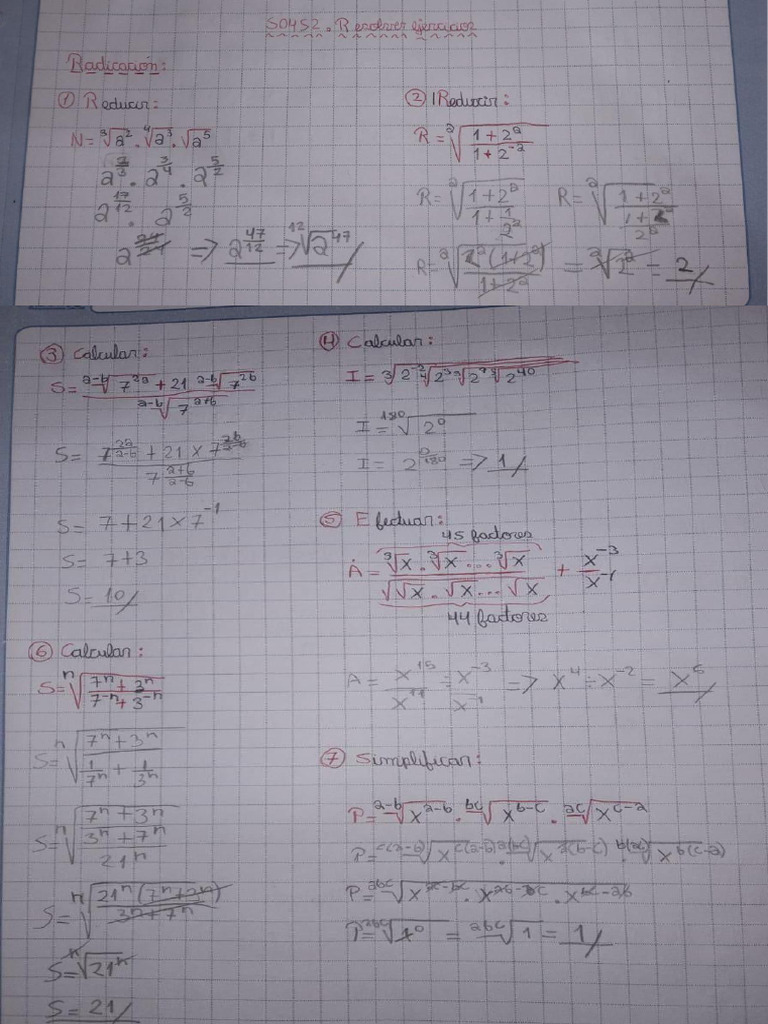 S04S2. Resolver ejercicios
Radicación:
① Reducir:
N = ∛a² · ∜a³ · √a⁵
2^(2/3) · 2^(3/4) · 2^(5/2)
2^(17/12) · 2^(5/2)
=> 2^(47/12) => ¹²√2⁴⁷
② Reducir:
R = ²√((1+2²)/(1+2⁻²))
R = ²√((1+2²)/(1+1/2²)) R = ²√((1+2²)/((1+2²)/2²))
R = ²√(2²(1+2²)/(1+2²)) = ²√2² = 2
③ Calcular:
S = (ᵃ⁻ᵇ√7²ᵃ + 21 ᵃ⁻ᵇ√7²ᵇ)/(ᵃ⁻ᵇ√7ᵃ⁺ᵇ)
S = (7^(2a/(a-b)) + 21 x 7^(2b/(a-b)))/(7^((a+b)/(a-b)))
S = 7 + 21 x 7⁻¹
S = 7 + 3
S = 10
④ Calcular:
I =
I = ¹⁸⁰√2⁰
I = 2^(0/180) => 1
⑤ Efectuar:
45 factores
A = (∛x · ∛x ... ∛x)/(√√x · √x ... √x) + x⁻³/x⁻¹
44 factores
A = x¹⁵/x¹¹ ÷ x⁻³/x⁻¹ => x⁴ ÷ x⁻² = x⁶
⑥ Calcular:
S = ⁿ√((7ⁿ+3ⁿ)/(7⁻ⁿ+3⁻ⁿ))
S = ⁿ√((7ⁿ+3ⁿ)/(1/7ⁿ + 1/3ⁿ))
S = ⁿ√((7ⁿ+3ⁿ)/((3ⁿ+7ⁿ)/21ⁿ))
S = ⁿ√(21ⁿ(7ⁿ+3ⁿ)/(3ⁿ+7ⁿ))
S = ⁿ√21ⁿ
S = 21
⑦ Simplificar:
P = ᵃ⁻ᵇ√x^(a-b) · ᵇᶜ√x^(b-c) · ᵃᶜ√x^(c-a)
P = ᵃᵇᶜ√x^(ac-bc) · x^(ab-bc) · x^(bc-ab)
= ᵃᵇᶜ√1 = 1